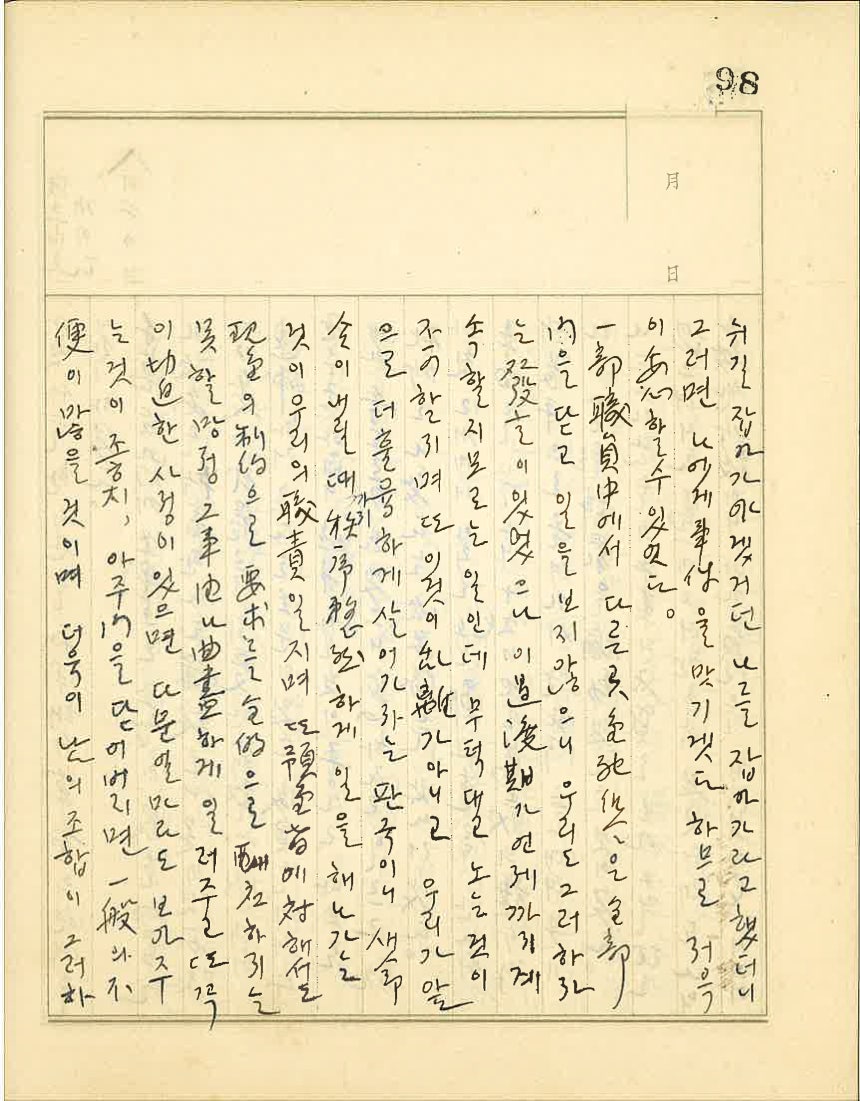 98
月 日
쉬길 잡아가야겠거던 나를 잡아가라고 했더니
그러면 나에게 事件을 맛기겟다 하므로 저윽
이 安心할 수 있었다。
一部 職員中에서 다른 곳 金融組合은 全部
门을 닫고 일을 보지 않으니 우리도 그러하자
는 双發論이 있었으나 이 過渡期가 언제까지 계
속할지 모르는 일인데 무턱대고 노는 것이
不可할지며 또 이것이 가 아니고 우리가 앞
으로 더 훌융하게 살어가라는 판국이니 새 命
令이 내릴 때까지 秩序整然하게 일을 해나가는
것이 우리의 職責일지며 또 預金者에 対해선
現金의 制約으로 要求를 全的으로 하지는
못할 망정 그 事由나 曲盡하게 일러주고 또 꼭
이 切迫한 사정이 있으면 다문 얼마라도 보아주
는 것이 좋치, 아주 门을 닫어버지면 一般의 不
便이 많을 것이며 더욱이 남의 조합이 그러하